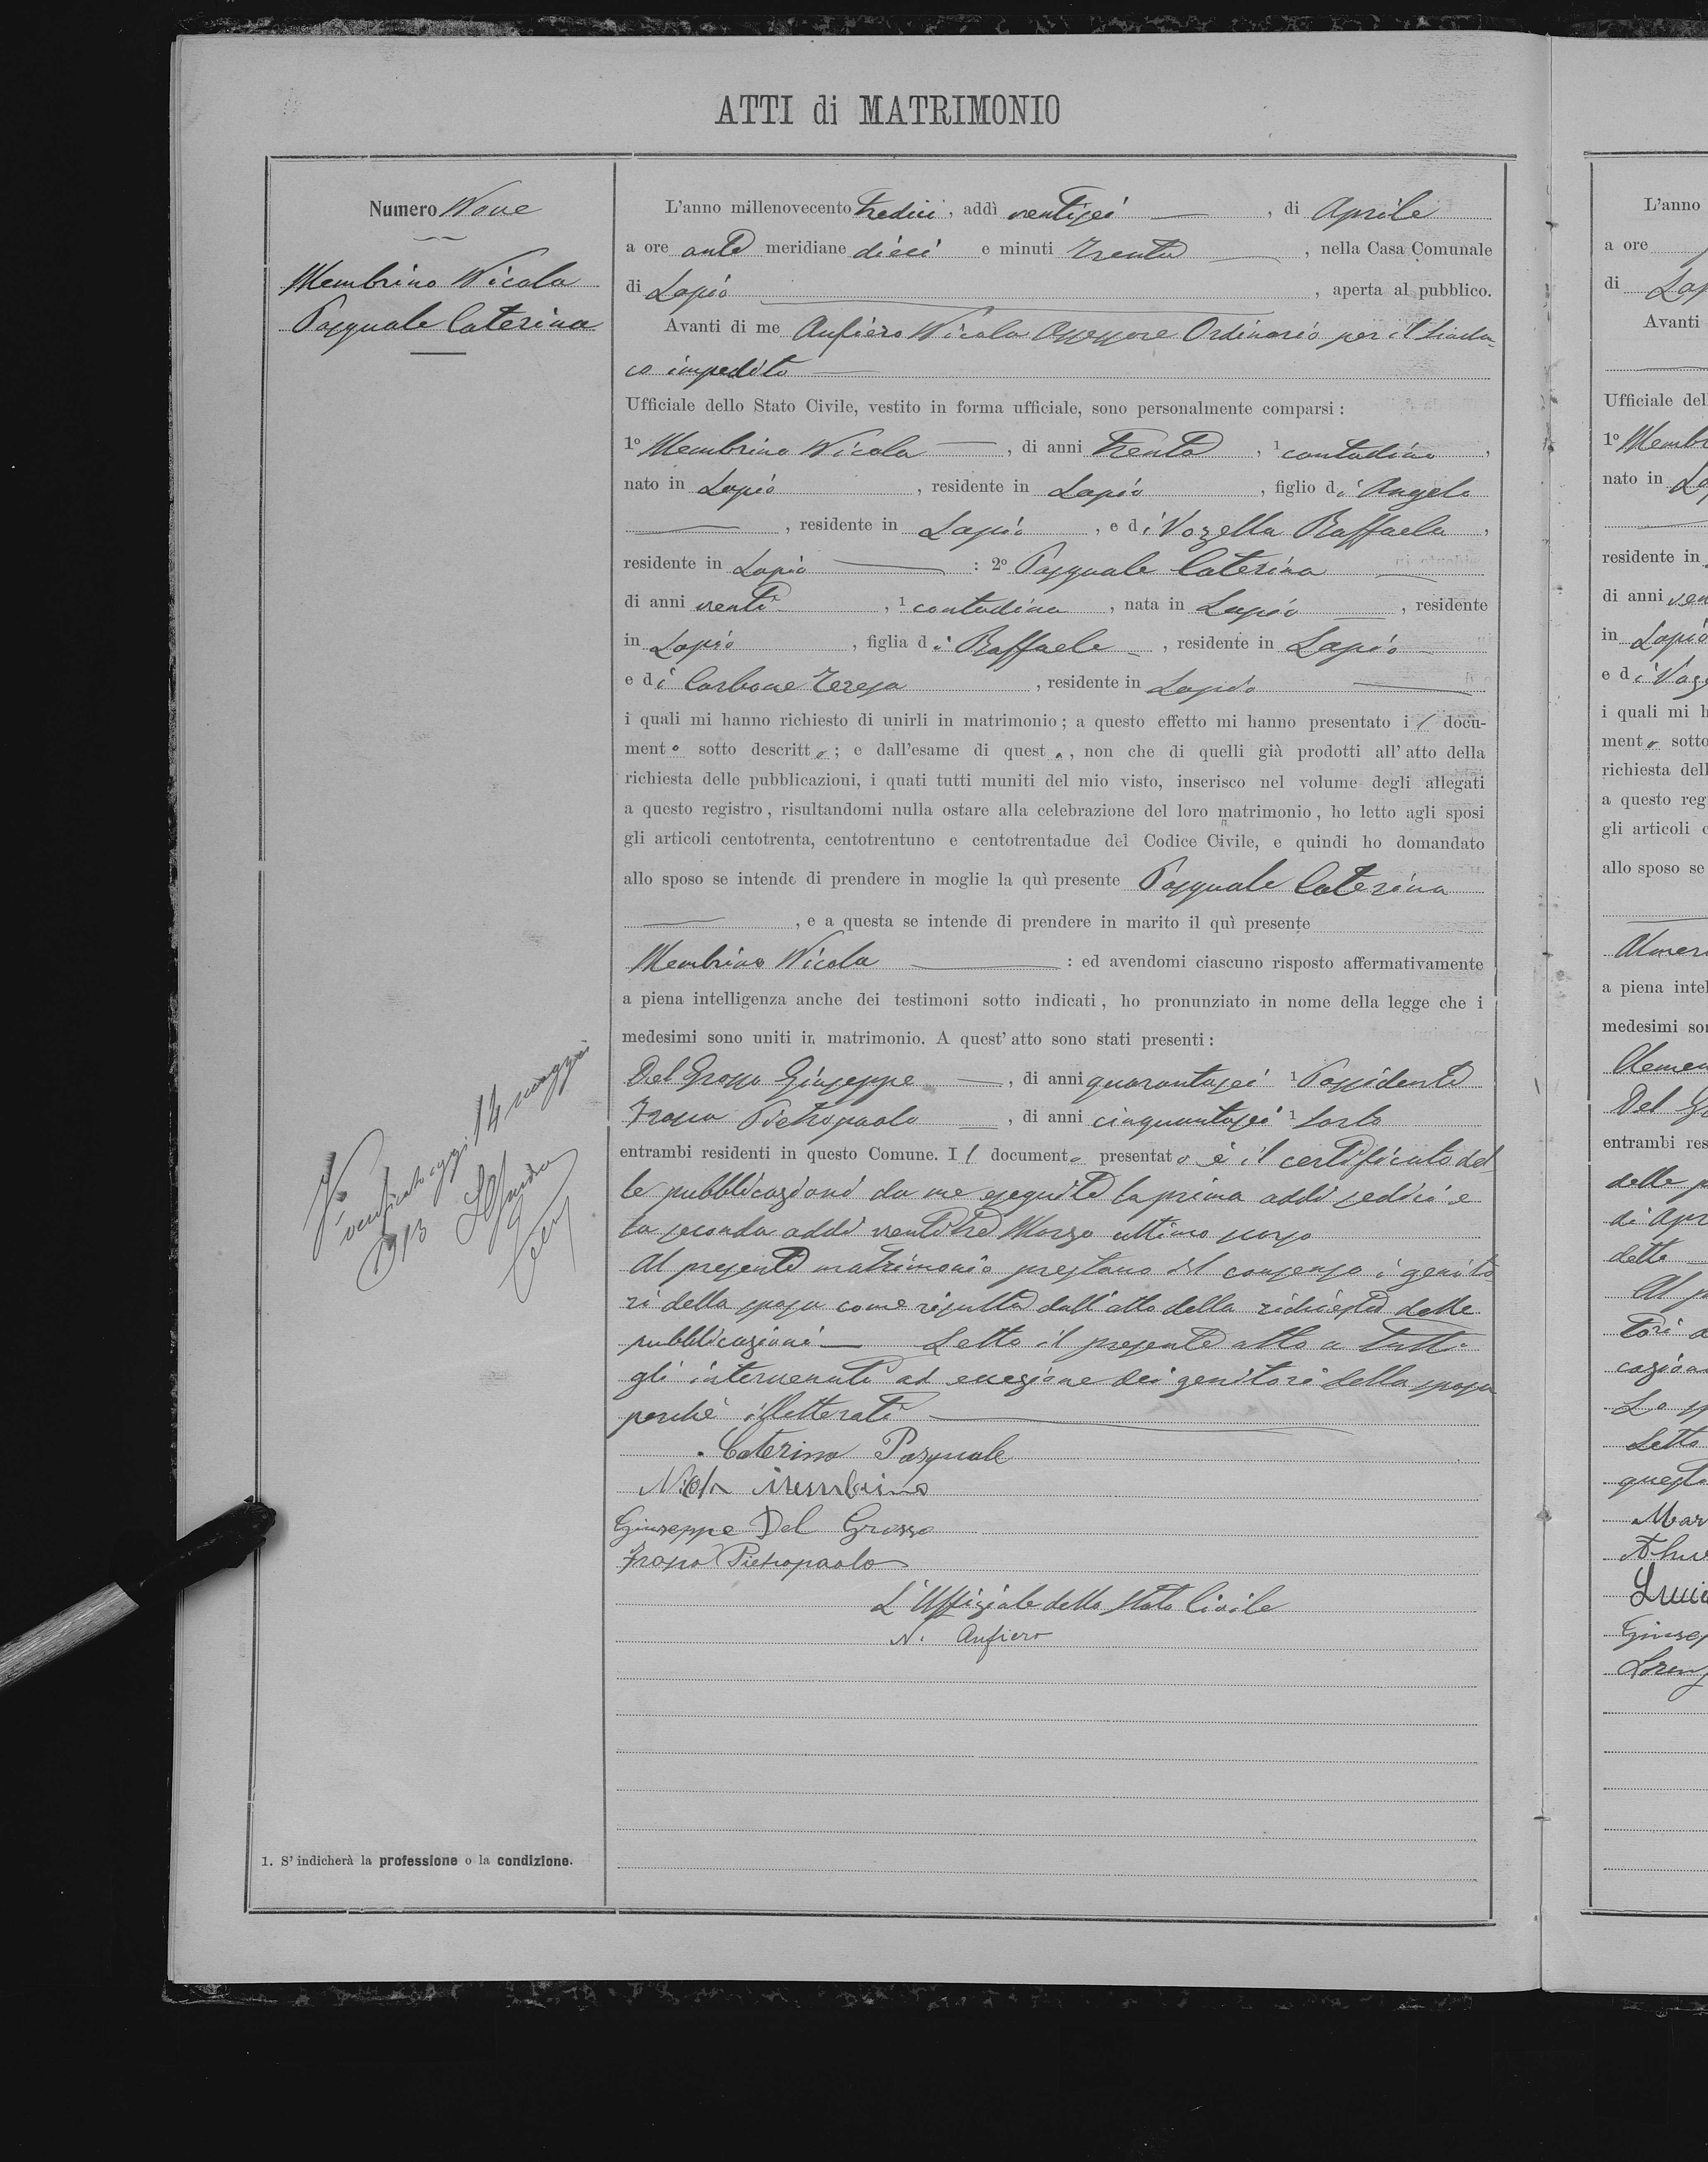 ATTI di MATRIMONIO
Numero Nove
Membrino Nicola
Pasquale Caterina
L'anno millenovecento tredici, addì ventisei, di Aprile
a ore ante meridiane dieci e minuti trenta, nella Casa Comunale
di Lapio, aperta al pubblico.
Avanti di me Anfiero Nicola Assessore Ordinario per il Sinda-
co impedito
Ufficiale dello Stato Civile, vestito in forma ufficiale, sono personalmente comparsi :
1º Membrino Nicola, di anni trenta, 1 contadino,
nato in Lapio, residente in Lapio, figlio di Angelo
, residente in Lapio, e di Vozella Raffaela,
residente in Lapio : 2º Pasquale Caterina
di anni venti, 1 contadina, nata in Lapio, residente
in Lapio, figlia di Raffaele, residente in Lapio
e di Carbone Teresa, residente in Lapio
i quali mi hanno richiesto di unirli in matrimonio ; a questo effetto mi hanno presentato il docu-
mento sotto descritto ; e dall'esame di questo, non che di quelli già prodotti all' atto della
richiesta delle pubblicazioni, i quati tutti muniti del mio visto, inserisco nel volume degli allegati
a questo registro , risultandomi nulla ostare alla celebrazione del loro matrimonio , ho letto agli sposi
gli articoli centotrenta, centotrentuno e centotrentadue del Codice Civile, e quindi ho domandato
allo sposo se intende di prendere in moglie la quì presente Pasquale Caterina
, e a questa se intende di prendere in marito il quì presente
Membrino Nicola : ed avendomi ciascuno risposto affermativamente
a piena intelligenza anche dei testimoni sotto indicati , ho pronunziato in nome della legge che i
medesimi sono uniti in matrimonio. A quest' atto sono stati presenti :
Del Grosso Giuseppe, di anni quarantasei 1 Possidente
Pietropaolo, di anni cinquantasei 1 Sarto
entrambi residenti in questo Comune. Il documento presentato è il certificato del
le pubblicazioni da me eseguite la prima addì sedici e
la seconda addì ventitre Marzo ultimo scorso
Al presente matrimonio prestano il consenso i genito
ri della sposa come risulta dall'atto della richiesta delle
pubblicazioni Letto il presente atto a tutti
gli intervenuti ad eccezione dei genitori della sposa
perchè illetterati
Caterina Pasquale
Nicola Membrino
Giuseppe Del Grosso
Pietropaolo
L'Uffiziale dello Stato Civile
N. Anfiero
verificato oggi 14 maggio
1913
1. S' indicherà la professione o la condizione.
L'anno
a ore
di Lap
Avanti
Ufficiale del
1º Membr
nato in La
residente in
di anni ven
in Lapio
e di Voz
i quali mi h
mento sotto
richiesta dell
a questo reg
gli articoli c
allo sposo se
a piena intel
medesimi son
Del G
entrambi res
delle p
di Apr
dette
Al p
tori d
cazion
Letto
questo
Mar
Giusep
Loren